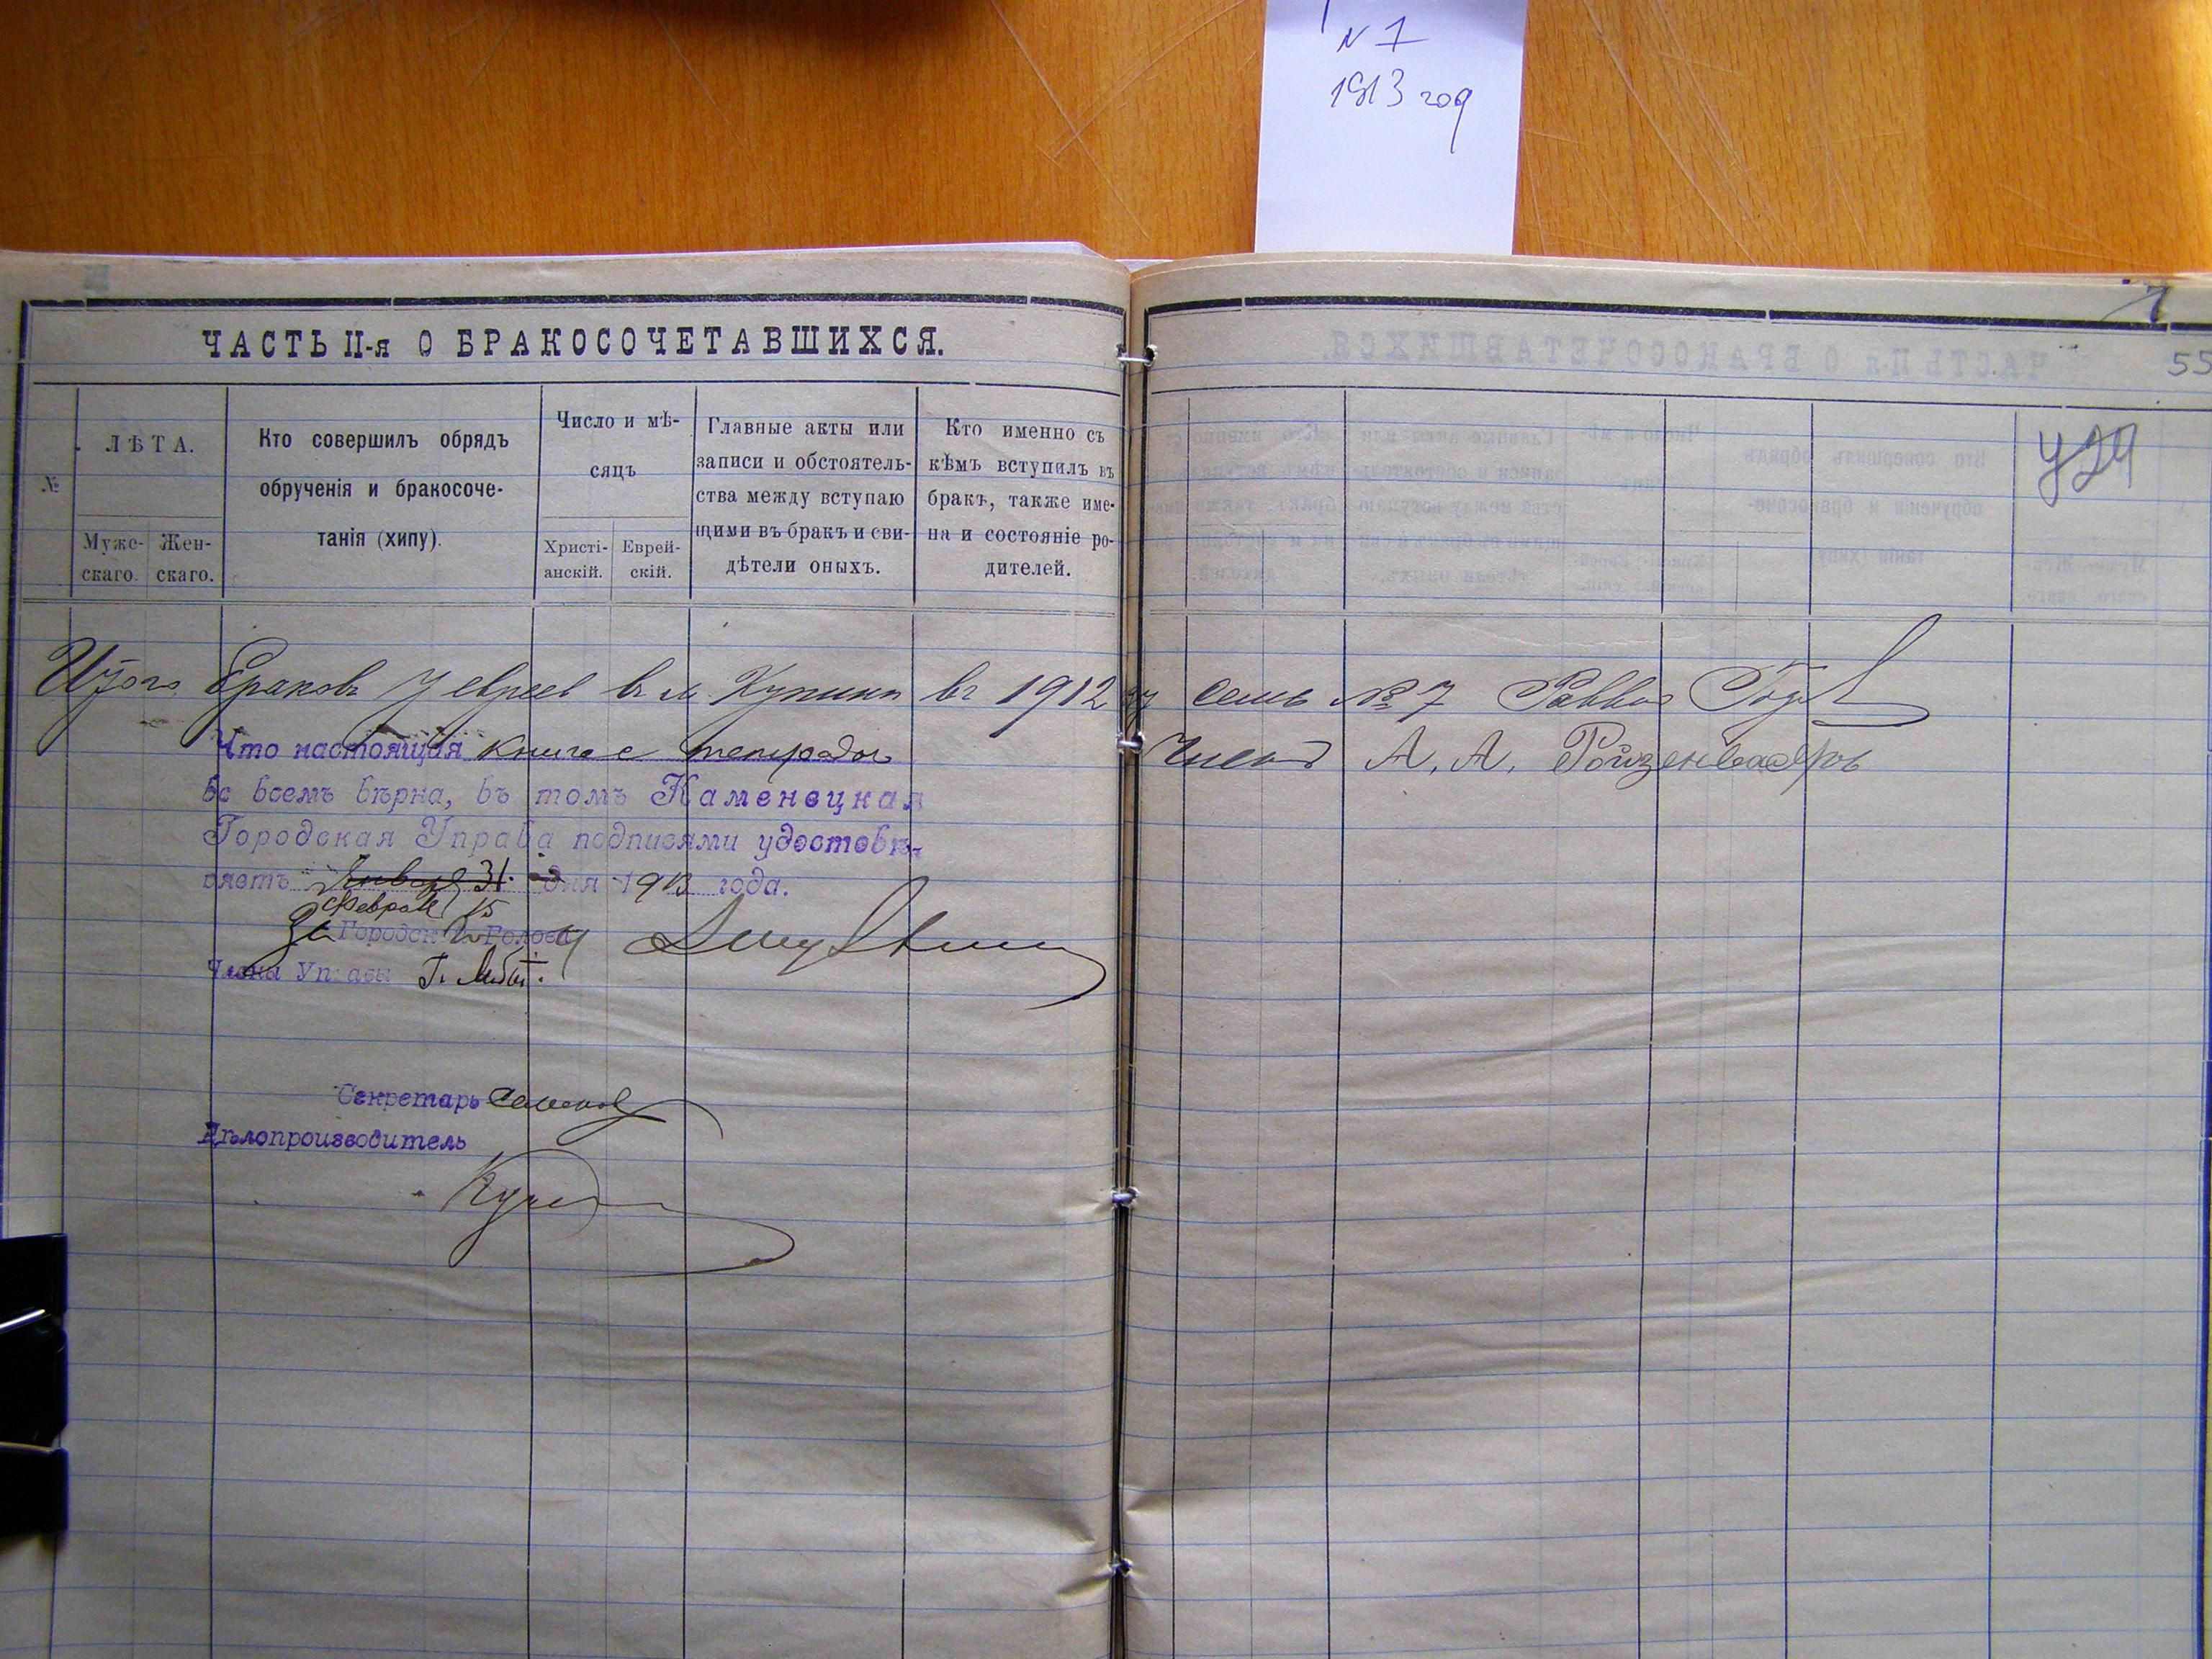 N 1
1913 год
ЧАСТЬ II-я О БРАКОСОЧЕТАВШИХСЯ.
55
№
ЛѢТА.
Мужескаго.
Женскаго.
Кто совершилъ обрядъ
обрученія и бракосоче-
танія (хипу).
Число и мѣ-
сяцъ
Христі-
анскій.
Еврей-
скій.
Главные акты или
записи и обстоятель-
ства между вступаю
щими въ бракъ и сви-
дѣтели оныхъ.
Кто именно съ
кѣмъ вступилъ въ
бракъ, также име-
на и состояніе ро-
дителей.
Итого браковъ у евреев въ м. Купинѣ въ 1912 году семь № 7 Раввинъ
Что настоящая книга с тетрадью
во всемъ вѣрна, въ томъ Каменецкая
Городская Управа подписями удостовѣ-
ряетъ Января 31 дня 1913 года.
Февраля 15
За Городского Голову
Члены Управы
Секретарь
Дѣлопроизводитель
Членъ А. А. Ройзенвассеръ